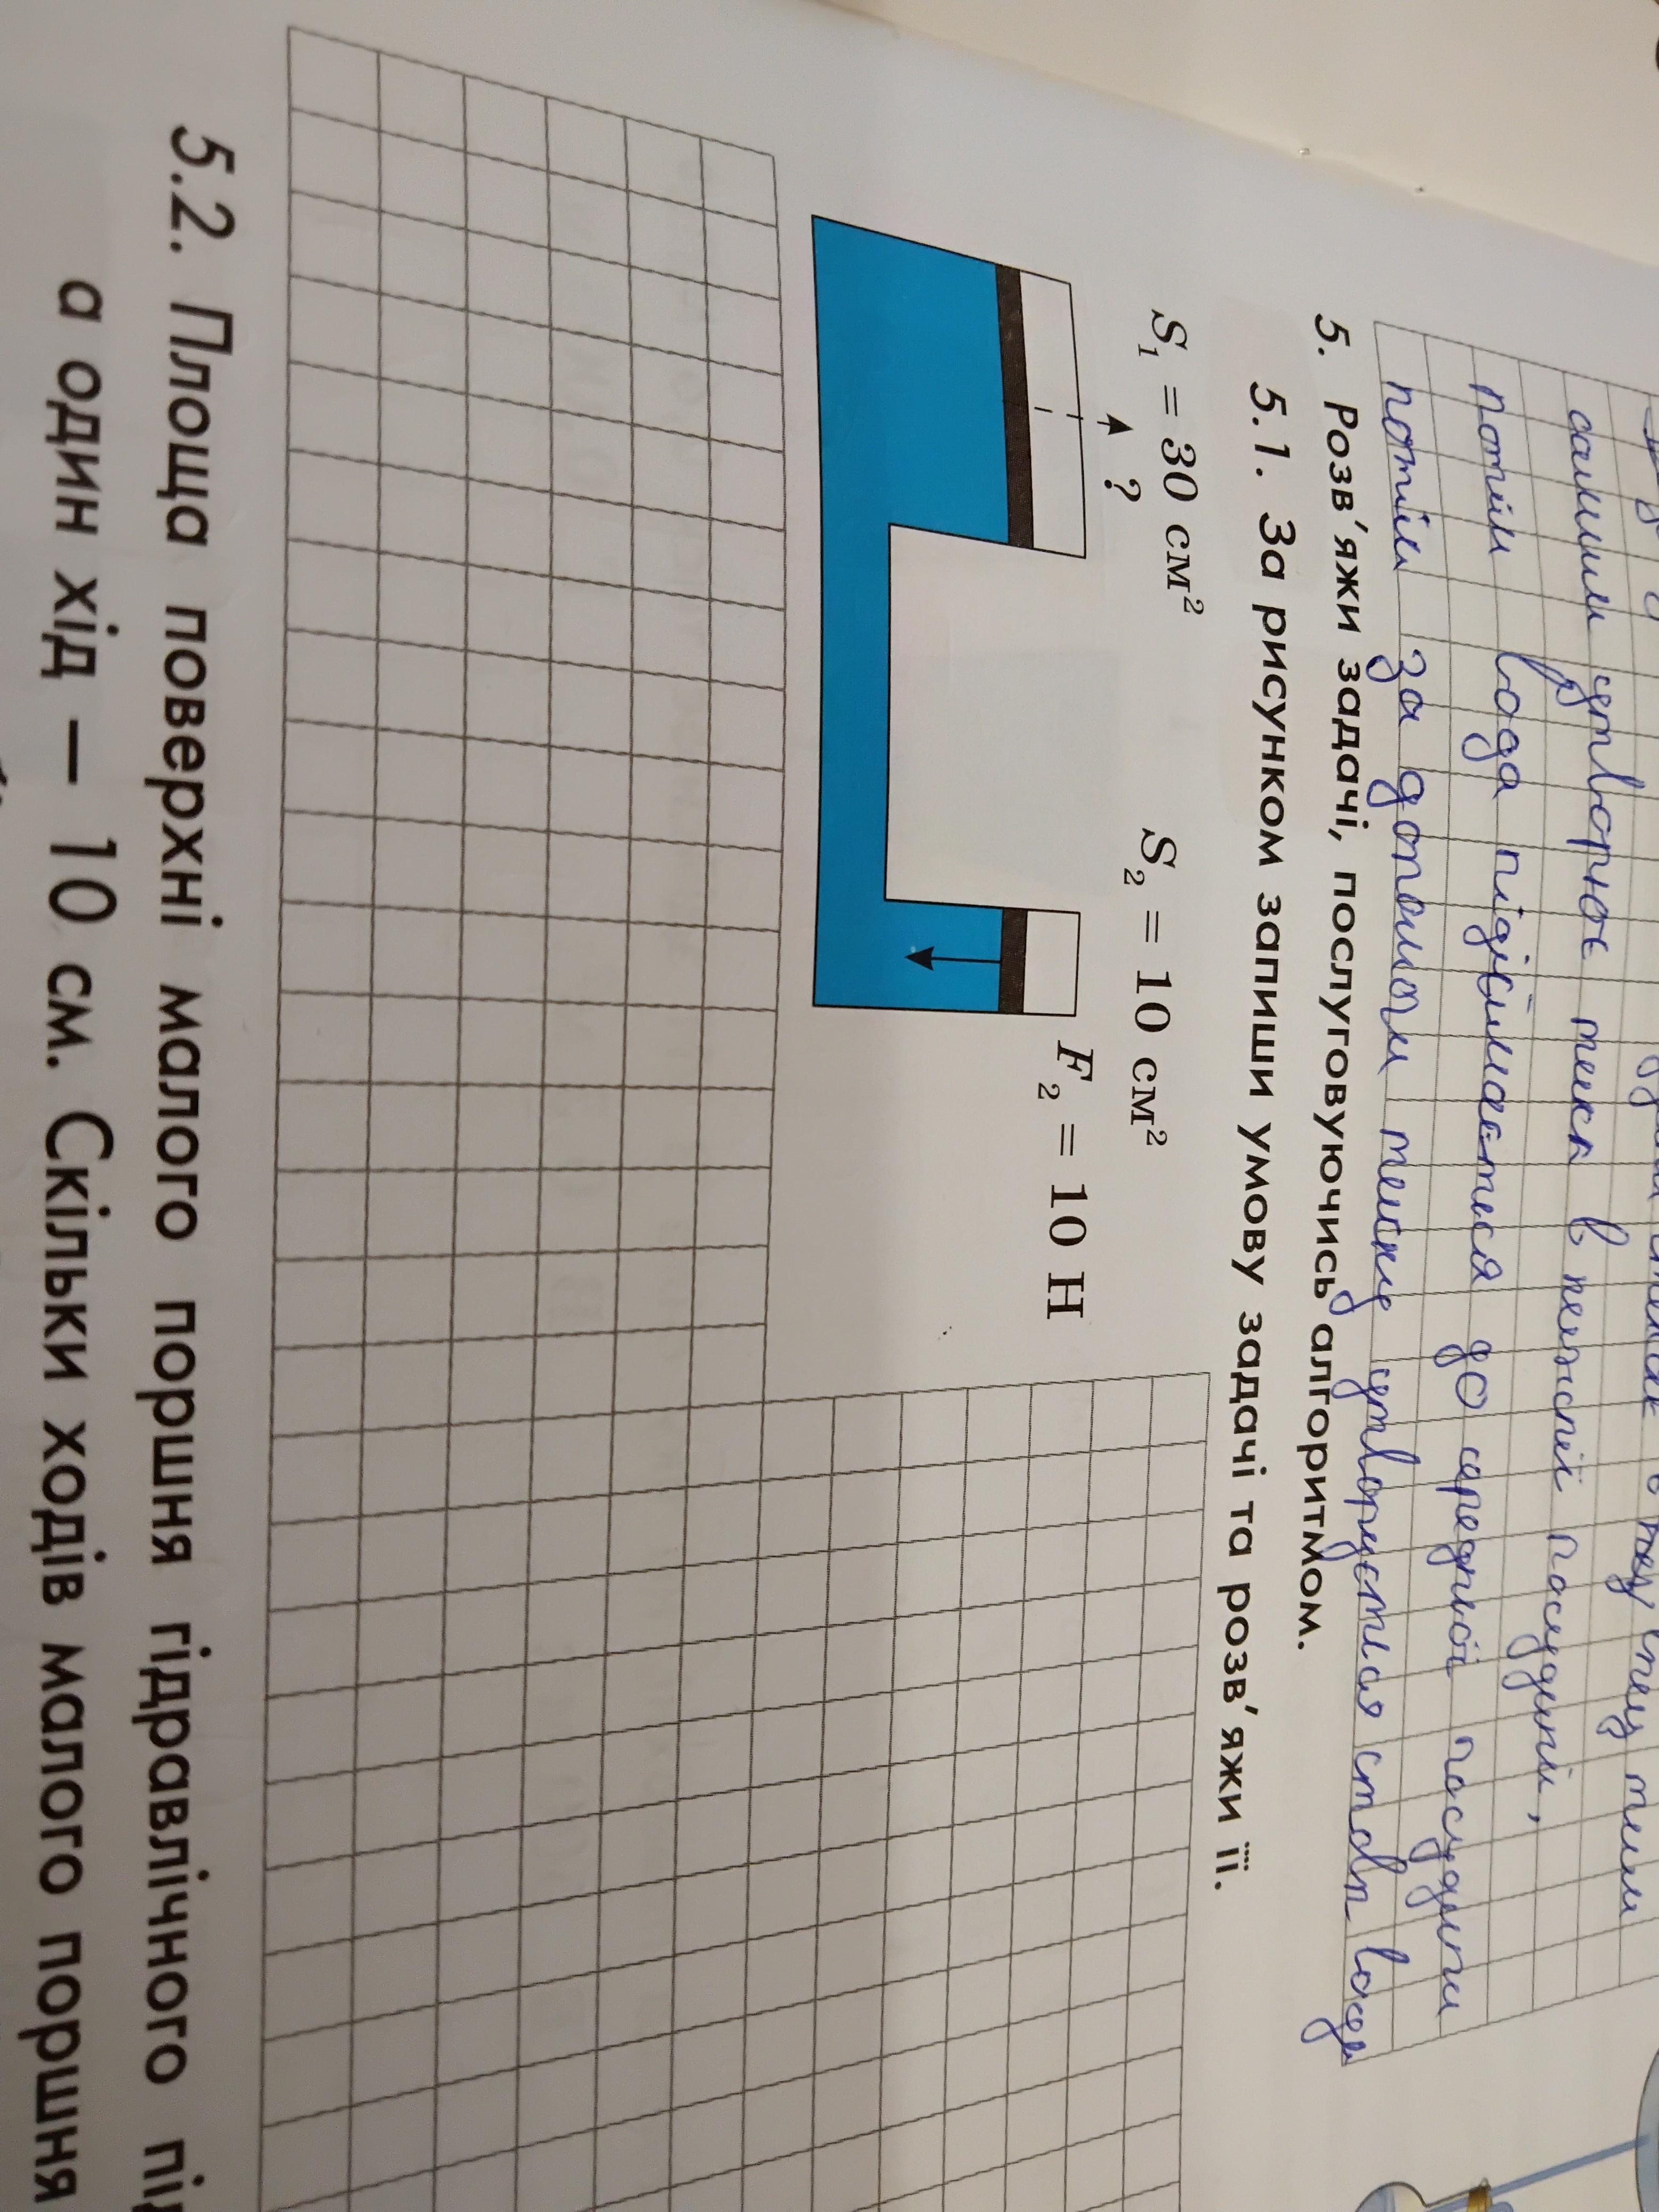 самим утворює тиск в нижній посудині,
потім вода підіймається до середньої посудини
потім за допомоги тиску утворюється стовп води
5. Розв’яжи задачі, послуговуючись алгоритмом.
5.1. За рисунком запиши умову задачі та розв’яжи її.
S₁ = 30 см² S₂ = 10 см²
?
F₂ = 10 Н
5.2. Площа поверхні малого поршня гідравлічного
а один хід — 10 см. Скільки ходів малого поршня